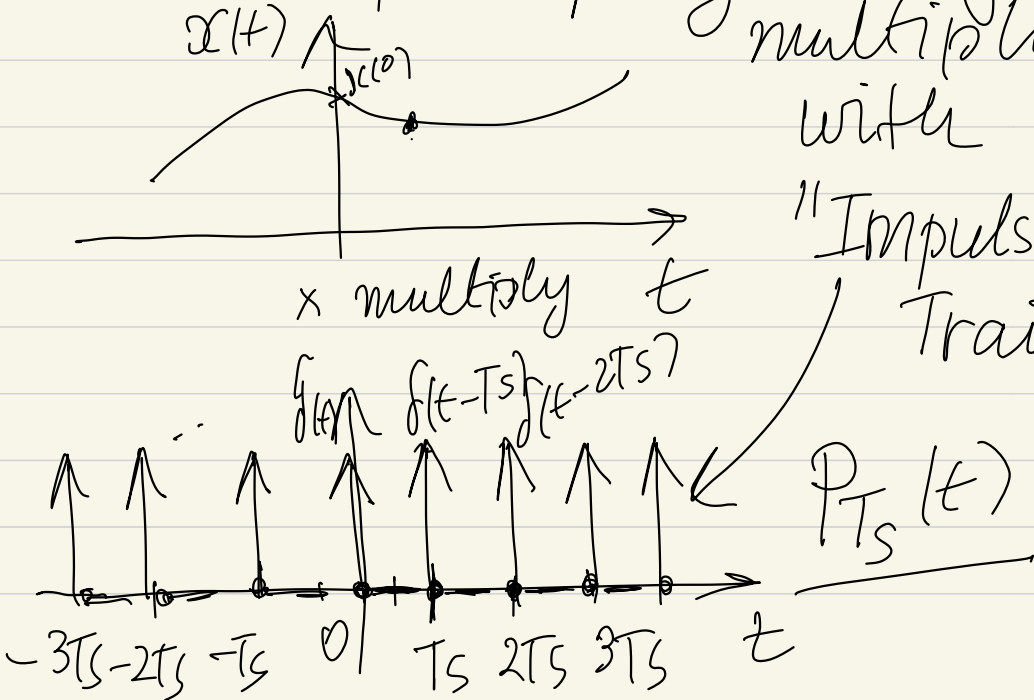 x(t)
x(0)
multipl
with
"Impuls
Trai
x multiply t
δ(t) δ(t-Ts) δ(t-2Ts)
P_Ts (t)
-3Ts -2Ts -Ts 0 Ts 2Ts 3Ts t